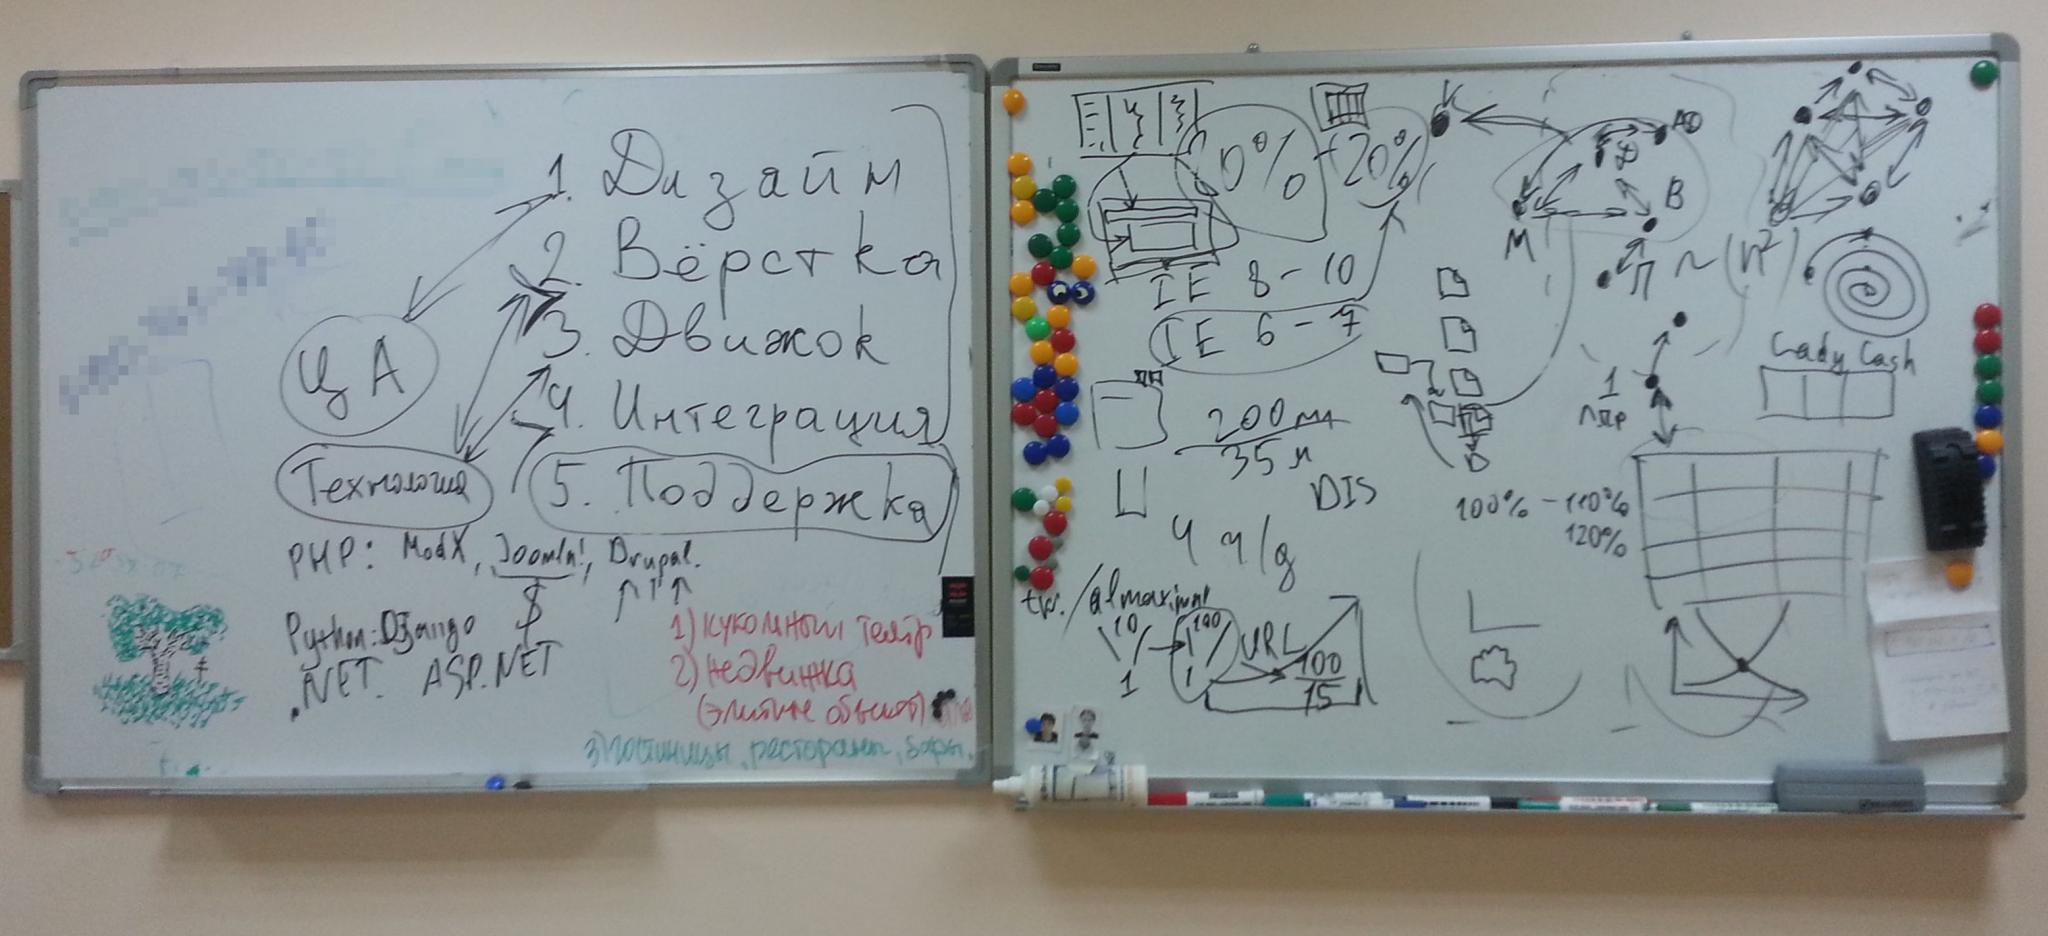 1. Дизайн
2. Вёрстка
3. Движок
4. Интеграция
5. Поддержка
ЦА
Технология
PHP: ModX, Joomla!, Drupal.
$
Python: Django
.NET. ASP.NET
1) кукольный театр
2) недвижка
(элитные объекты)
3) гостиницы, рестораны, бары,
0% - 20%
IE 8-10
IE 6-7
200 мл
35 м
DIS
4 ч/д
tw./almaximal
10 100
1 1
URL
100
15
К
Д
В
М
П ~ (n²)
1
пар
Lady Cash
100% - 110%
120%